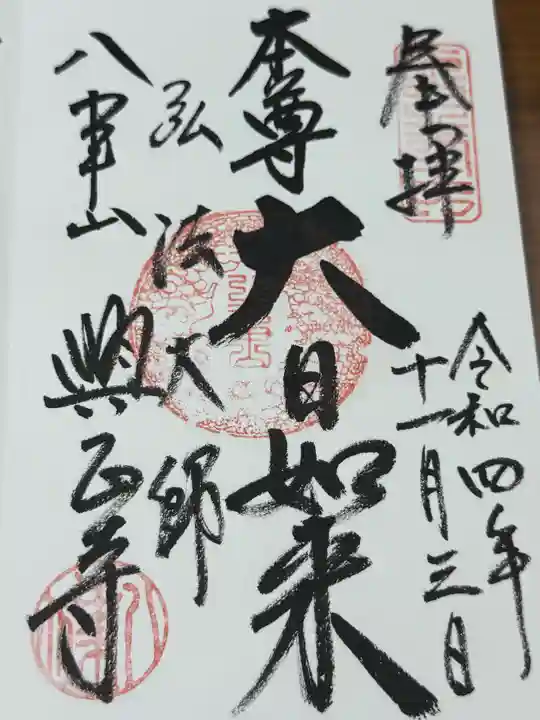 奉拝
令和四年
十一月三日
本尊
大日如来
弘法大師
八事山
興正寺